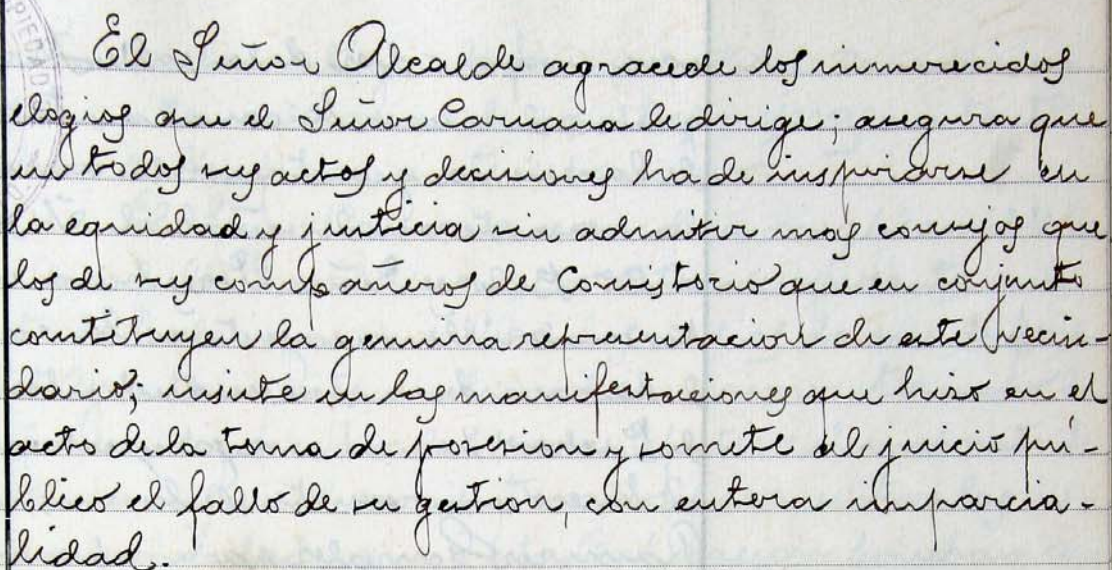 El Señor Alcalde agradece los inmerecidos
elogios que el Señor Caruana le dirige; asegura que
en todos sus actos y decisiones ha de inspirarse en
la equidad y justicia sin admitir mas consejos que
los de sus compañeros de Consistorio que en conjunto
constituyen la genuina representacion de este vecin-
dario; insiste en las manifestaciones que hizo en el
acto de la toma de posesion y somete al juicio pú-
blico el fallo de su gestion, con entera imparcia-
lidad.
PIEDAD